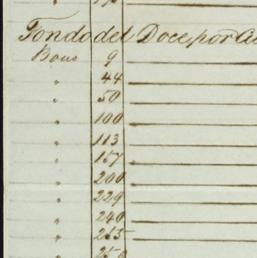 Fondo del Doce por
Bono 9
" 44
" 50
" 100
" 113
" 157
" 200
" 229
" 240
" 245